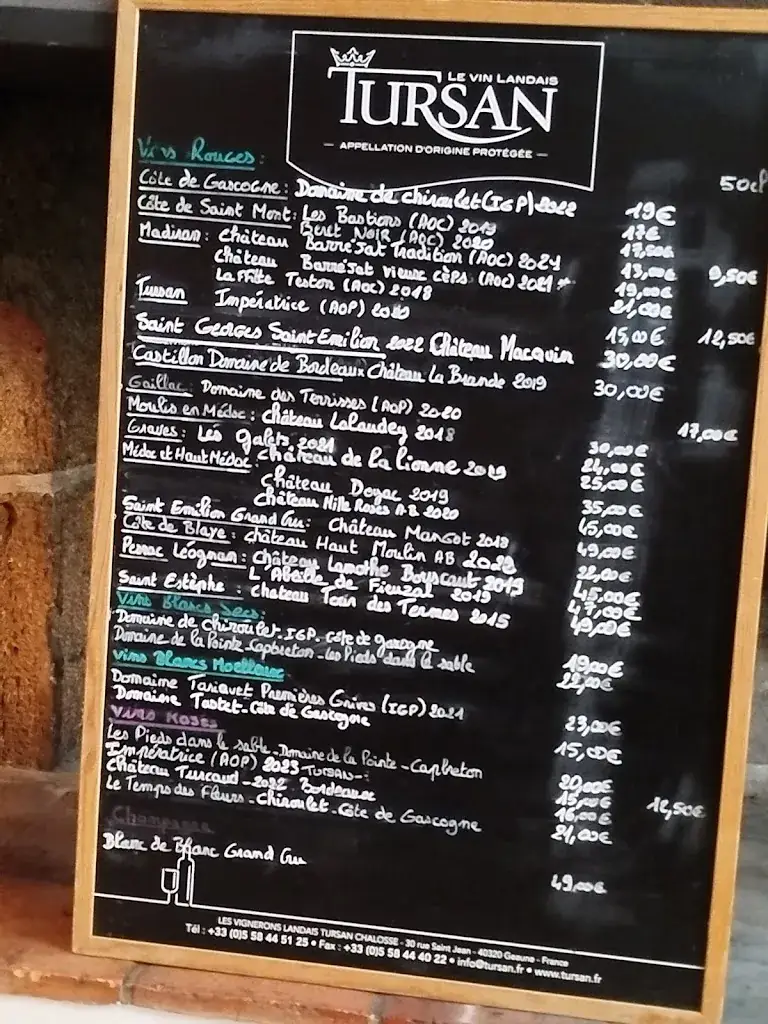 LE VIN LANDAIS
TURSAN
— APPELLATION D'ORIGINE PROTÉGÉE —
Vins Rouges:
50cl
Côte de Gascogne: Domaine de chiroulet (IGP) 2022 19€
Côte de Saint Mont: Les Bastions (AOC) 2019 17€
Béret Noir (AOC) 2020 17,50€
Madiran: Château Barréjat Tradition (AOC) 2021 13,00€ 9,50€
Château Barréjat vieux cèps (AOC) 2021 19,00€
Laffitte Teston (AOC) 2018 21,00€
Tursan Impératrice (AOP) 2020 15,00€ 12,50€
Saint Georges Saint Emilion 2022 Château Macquin 30,00€
Castillon Domaine de Bordeaux Château La Brande 2019 30,00€
Gaillac: Domaine des Terrisses (AOP) 2020 17,00€
Moulis en Médoc: Château Lalaudey 2018 30,00€
Graves: Les galets 2021 24,00€
Château de la lionne 2019 25,00€
Médoc et Haut Médoc: Château Doyac 2019 35,00€
Château Mille Roses A.B 2020 45,00€
Saint Emilion Grand Cru: Château Mangot 2018 49,00€
Côte de Blaye: château Haut Moulin AB 2020 22,00€
Pessac Léognan: Château Lamothe Bouscaut 2019 45,00€
L'Abeille de Fieuzal 2019 47,00€
Saint Estèphe: Chateau Tour des Termes 2015 49,00€
Vins Blancs Secs:
Domaine de Chiroulet-IGP-Côte de gascogne 19,00€
Domaine de la Pointe-Capbreton-les Pieds dans le sable 22,00€
Vins Blancs Moelleux
Domaine Tariquet Premières Grives (IGP) 2021 23,00€
Domaine Tastet-Côte de Gascogne 15,50€
Vins Rosés
Les Pieds dans le sable-Domaine de la Pointe-Capbreton 20,00€
Impératrice (AOP) 2023-Tursan-: 15,00€ 12,50€
Château Turcaud-2022 Bordeaux 16,00€
Le Temps des Fleurs-Chiroulet-Côte de Gascogne 21,00€
Champagne
Blanc de Blanc Grand Cru 49,00€
LES VIGNERONS LANDAIS TURSAN CHALOSSE - 30 rue Saint Jean - 40320 Geaune - France
Tél : +33 (0)5 58 44 51 25 • Fax : +33 (0)5 58 44 40 22 • info@tursan.fr • www.tursan.fr